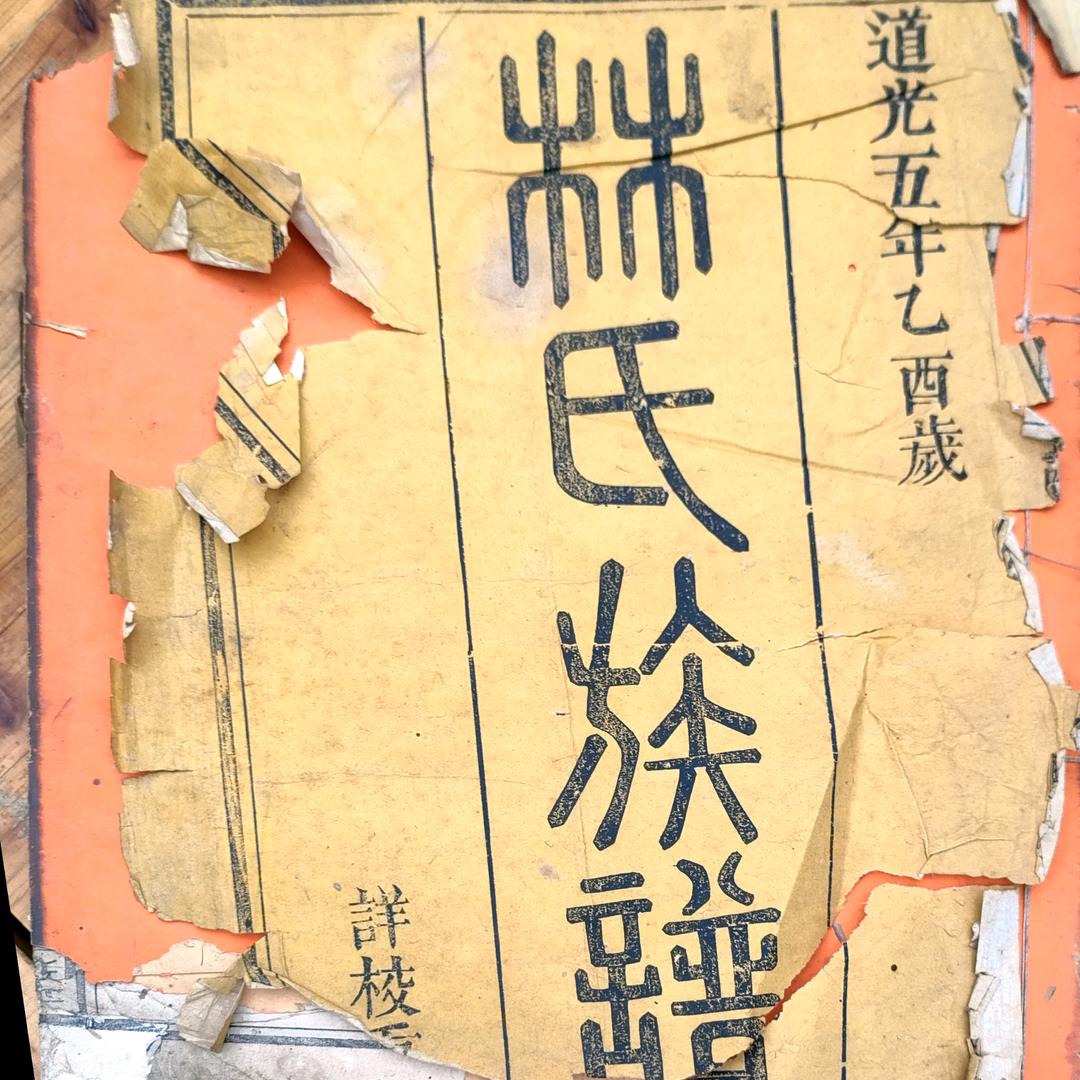 道光五年乙酉歲
林氏族譜
詳校